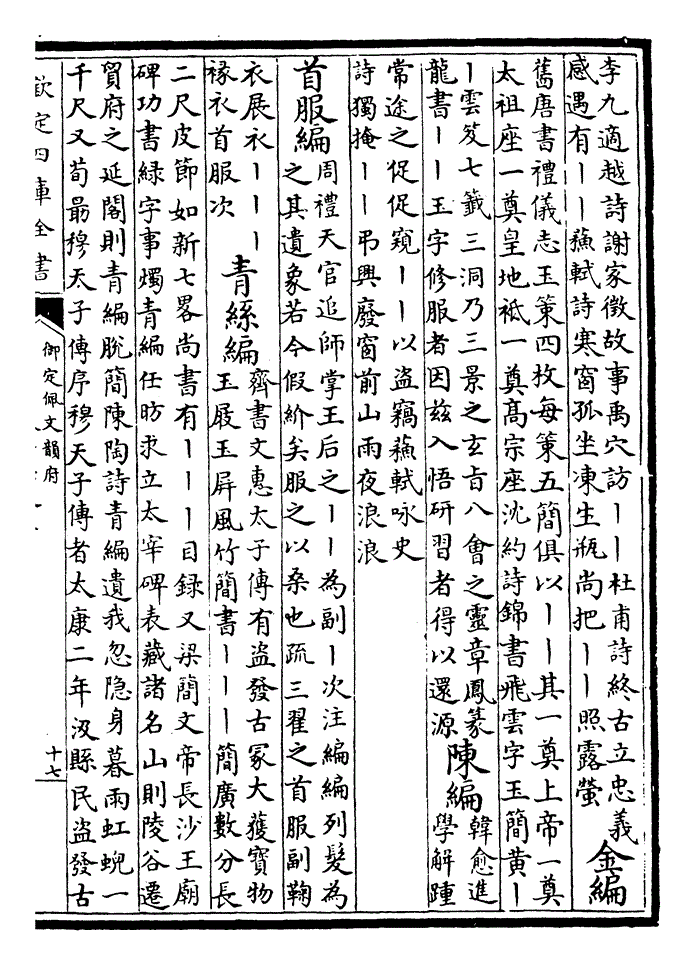 李九適越詩謝家徵故事禹穴訪丨丨杜甫詩終古立忠義
感遇有丨丨蘇軾詩寒窗孤坐凍生瓶尚把丨丨照露螢
金編
舊唐書禮儀志玉策四枚每策五簡俱以丨丨其一奠上帝一奠
太祖座一奠皇地祇一奠髙宗座沈約詩錦書飛雲字玉簡黄丨
丨雲笈七籤三洞乃三景之玄㫖八會之靈章鳳篆
龍書丨丨玉字修服者因兹入悟研習者得以還源
陳編
韓愈進
學解踵
常途之促促窺丨丨以盜竊蘇軾咏史
詩獨掩丨丨弔興廢窗前山雨夜浪浪
首服編
周禮天官追師掌王后之丨丨為副丨次注編編列髮為
之其遺象若今假紒矣服之以桑也疏三翟之首服副鞠
衣展衣丨丨丨
褖衣首服次
青絲編
齊書文惠太子傳有盜發古冢大獲寶物
玉屐玉屏風竹簡書丨丨丨簡廣數分長
二尺皮節如新七畧尚書有丨丨丨目録又梁簡文帝長沙王廟
碑功書緑字事燭青編任昉求立太宰碑表藏諸名山則陵谷遷
貿府之延閣則青編脫簡陳陶詩青編遺我忽隐身暮雨虹蜺一
千尺又荀朂穆天子傳序穆天子傳者太康二年汲縣民盜發古
欽定四庫全書
御定佩文韻府
十七